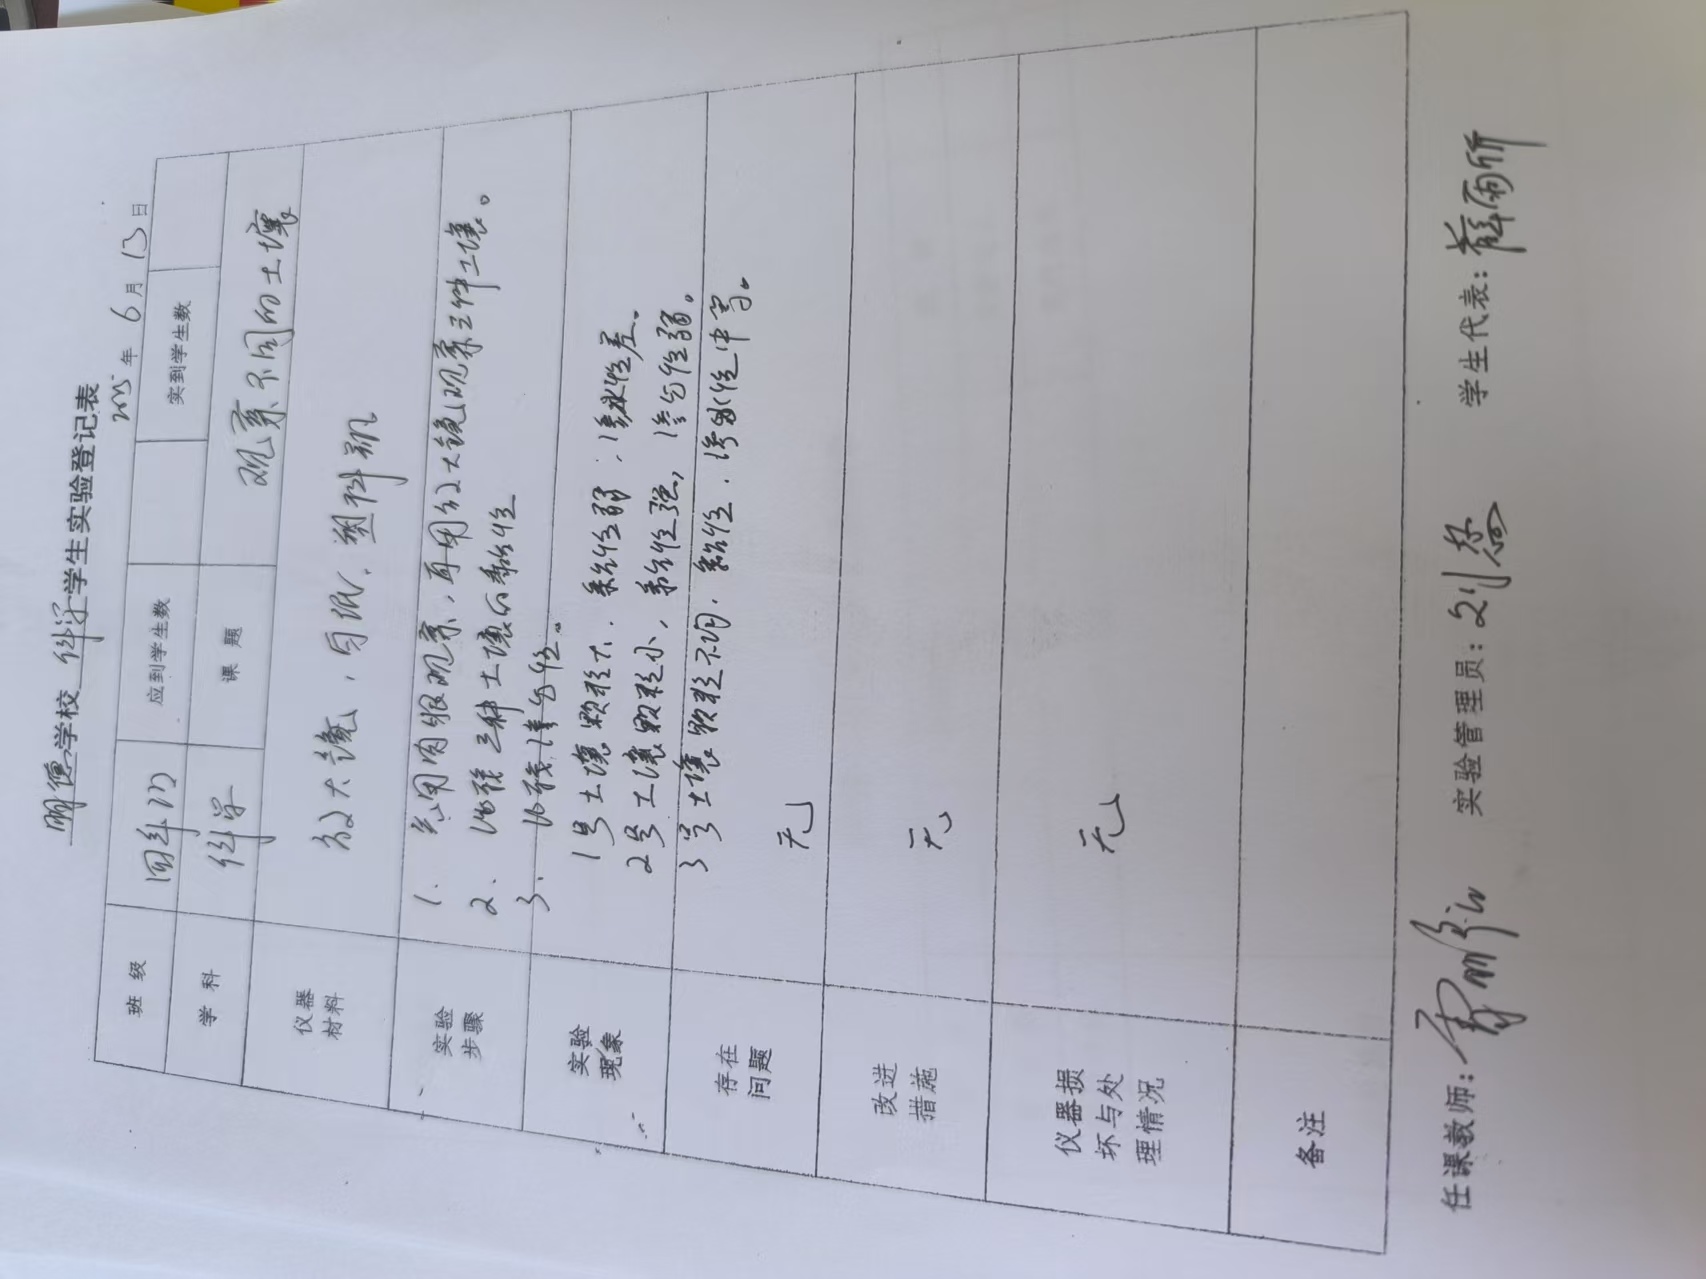 明德学校 科学 学生实验登记表
2025年 6月 13日
班 级 四年 应到学生数 实到学生数
学 科 科学 课 题 观察不同的土壤
仪器材料 放大镜，白纸，塑料瓶
实验步骤 1. 先用肉眼观察，再用放大镜观察三种土壤。
2. 比较三种土壤的黏性
3. 比较渗水性。
实验现象 1号土壤颗粒大，黏性弱，渗水性差。
2号土壤颗粒小，黏性强，渗水性弱。
3号土壤颗粒不均，黏性，渗水性中等。
存在问题 无
改进措施 无
仪器损坏与处理情况 无
备注
任课教师： 实验管理员：刘 学生代表：薛雨